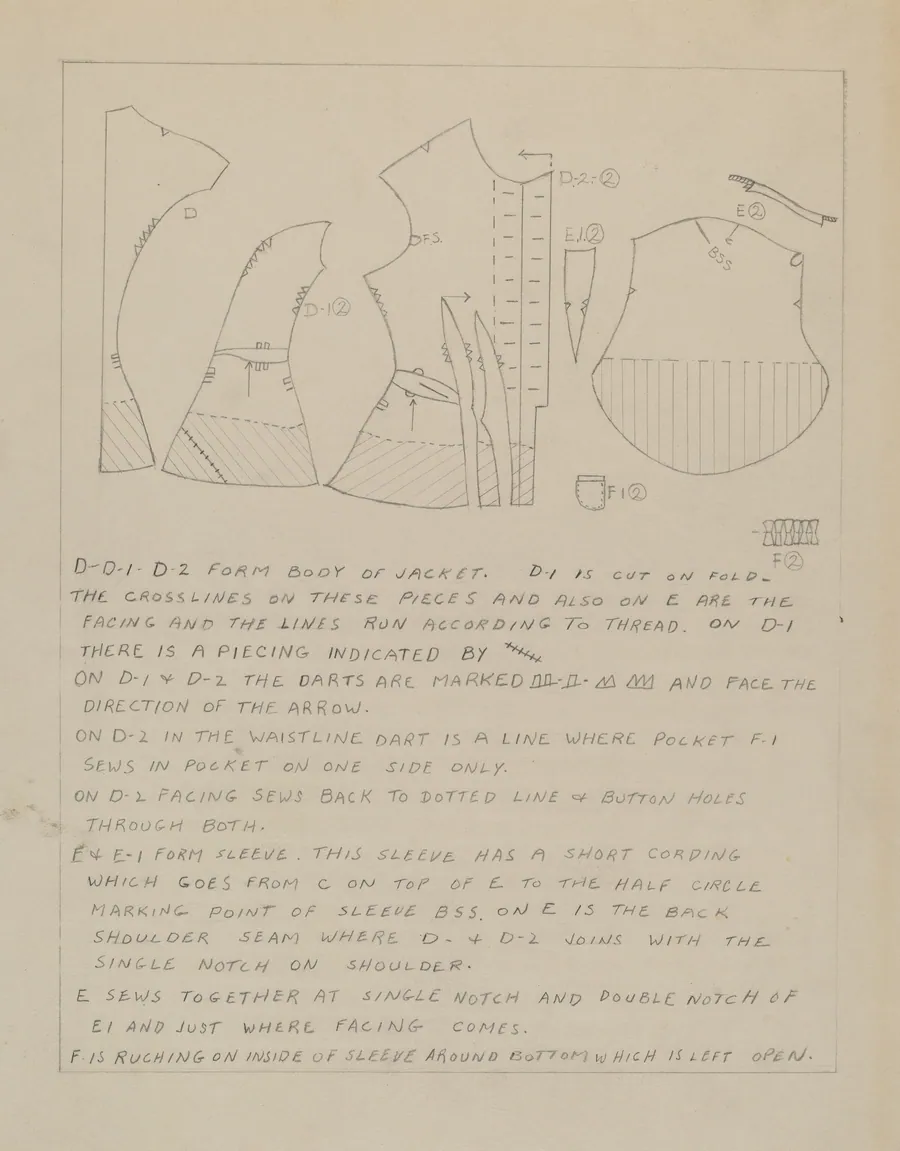 D
D-1②
F.S.
D-2-②
E.1.②
E②
BSS
F1②
F②
D-D-1- D-2 FORM BODY OF JACKET. D-1 IS CUT ON FOLD-
THE CROSSLINES ON THESE PIECES AND ALSO ON E ARE THE
FACING AND THE LINES RUN ACCORDING TO THREAD. ON D-1
THERE IS A PIECING INDICATED BY
ON D-1 & D-2 THE DARTS ARE MARKED AND FACE THE
DIRECTION OF THE ARROW.
ON D-2 IN THE WAISTLINE DART IS A LINE WHERE POCKET F-1
SEWS IN POCKET ON ONE SIDE ONLY.
ON D-2 FACING SEWS BACK TO DOTTED LINE & BUTTON HOLES
THROUGH BOTH.
E & E-1 FORM SLEEVE. THIS SLEEVE HAS A SHORT CORDING
WHICH GOES FROM C ON TOP OF E TO THE HALF CIRCLE
MARKING POINT OF SLEEVE BSS. ON E IS THE BACK
SHOULDER SEAM WHERE D- & D-2 JOINS WITH THE
SINGLE NOTCH ON SHOULDER.
E SEWS TOGETHER AT SINGLE NOTCH AND DOUBLE NOTCH OF
E1 AND JUST WHERE FACING COMES.
F-IS RUCHING ON INSIDE OF SLEEVE AROUND BOTTOM WHICH IS LEFT OPEN.